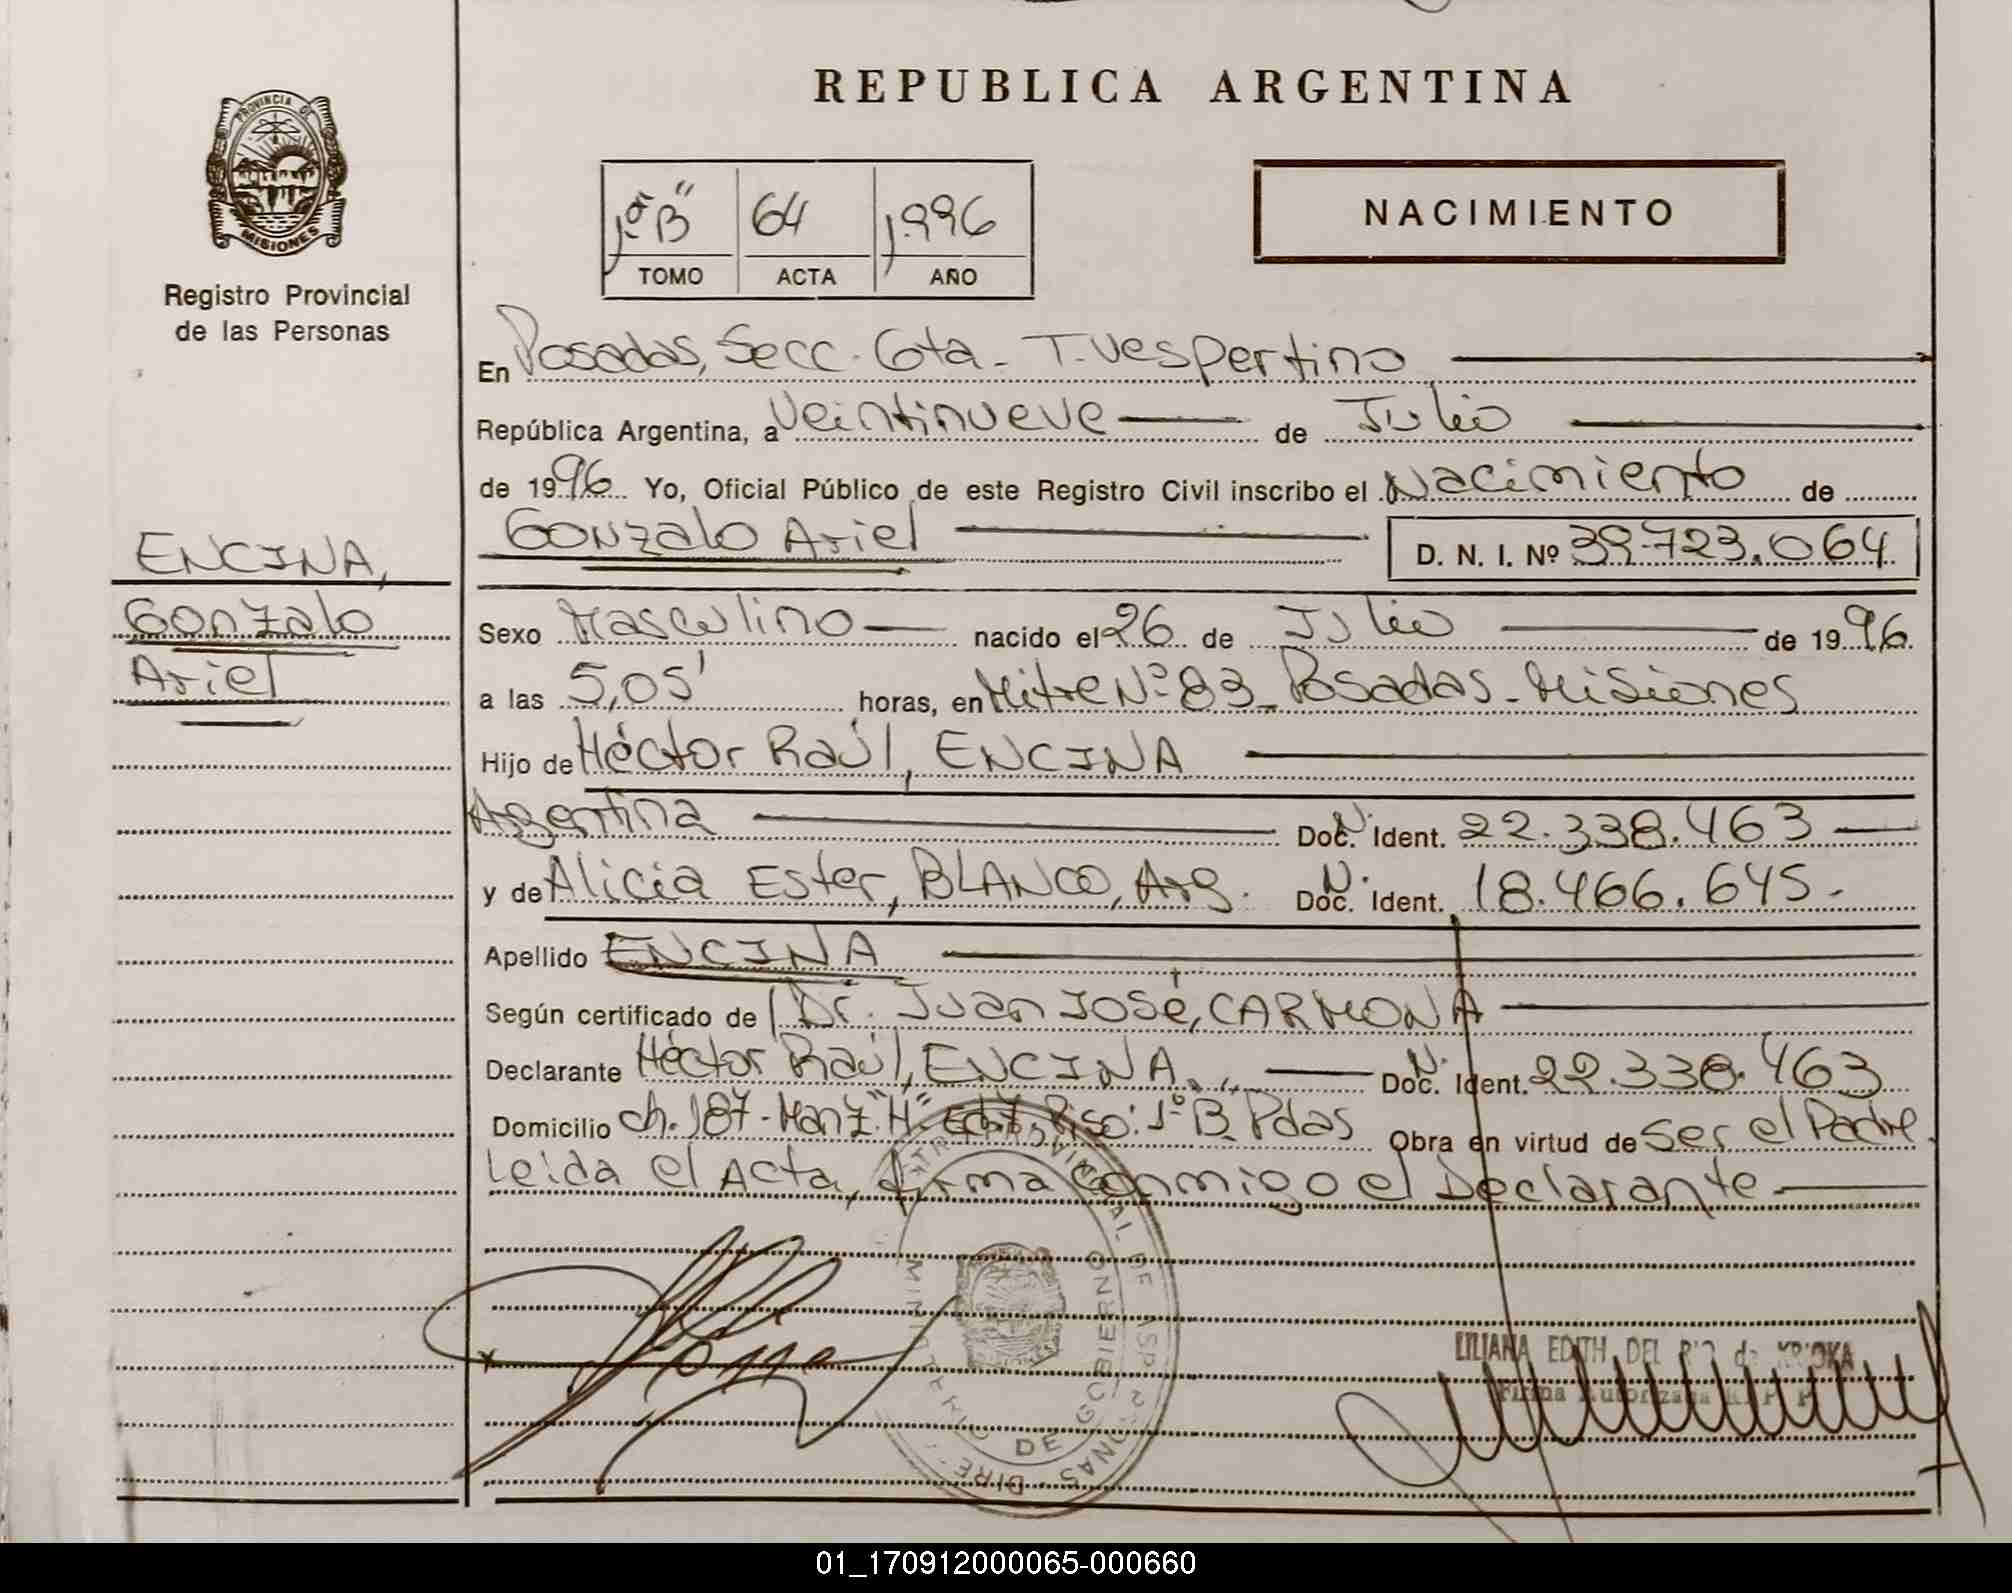 REPUBLICA ARGENTINA
PROVINCIA DE
MISIONES
Registro Provincial
de las Personas
1º "B" 64 1996
TOMO ACTA AÑO
NACIMIENTO
En Posadas, Secc. 6ta - T. Vespertino
República Argentina, a Veintinueve de Julio
de 1996 Yo, Oficial Público de este Registro Civil inscribo el Nacimiento de
Gonzalo Ariel D. N. I. Nº 39.723.064
ENCINA,
Gonzalo
Ariel
Sexo Masculino nacido el 26 de Julio de 1996.
a las 5,05' horas, en Mitre Nº 83 - Posadas - Misiones
Hijo de Héctor Raúl, ENCINA
Argentina Doc. N. Ident. 22.338.463
y de Alicia Ester, BLANCO, Arg. Doc. N. Ident. 18.466.645.-
Apellido ENCINA
Según certificado de Dr. Juan José, CARMONA
Declarante Héctor Raúl, ENCINA Doc. N. Ident. 22.338.463
Domicilio Ch. 187 - Manz. "H" Piso: 1º B. Pdas Obra en virtud de Ser el Padre.
Leida el Acta, firma conmigo el Declarante
DE GOBIERNO
LILIANA EDITH DEL
Firma Autorizada
01_170912000065-000660